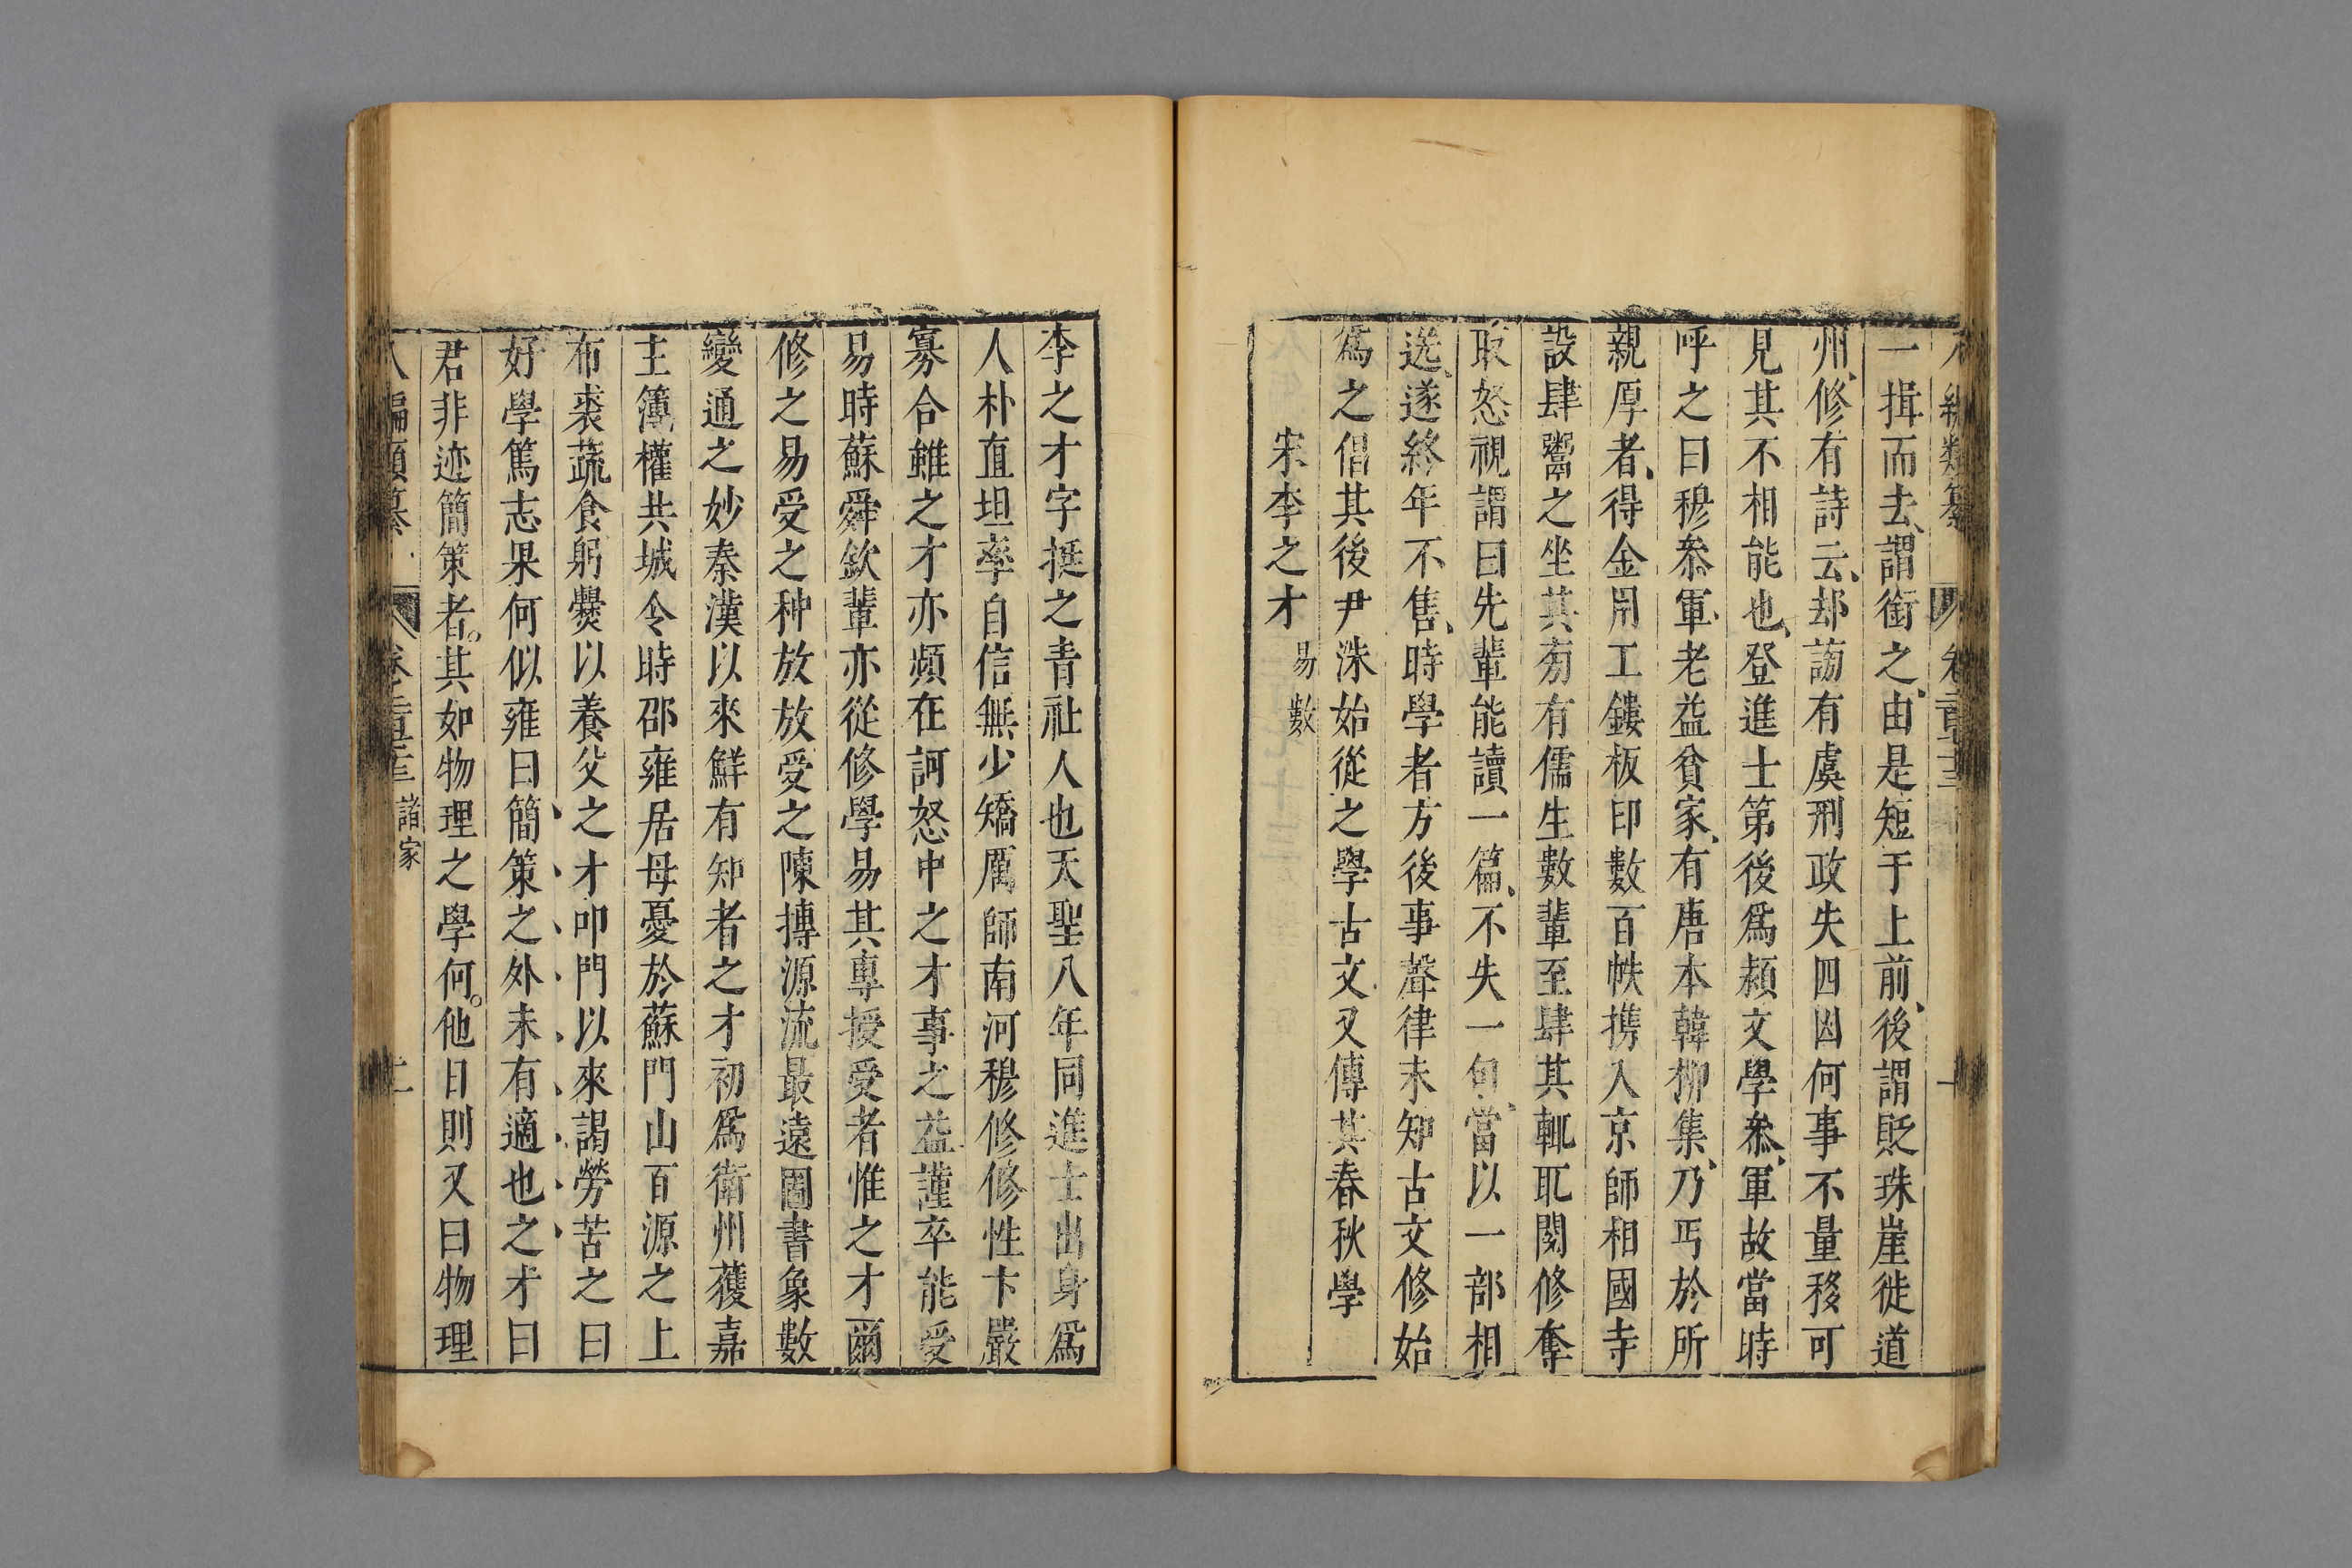 一揖而去謂衛之由是短于上前後謂貶珠崖徙道
州修有詩云却訪有虞刑政失四凶何事不量移可
見其不相能也登進士第後爲潁文學叅軍故當時
呼之曰穆叅軍老益貧家有唐本韓柳集乃丐於所
親厚者得金用工鏤板印數百帙携入京師相國寺
設肆鬻之坐其旁有儒生數輩至肆其輒取閱修奪
取怒視謂曰先輩能讀一篇不失一句當以一部相
送遂終年不售時學者方後事聲律未知古文修始
爲之倡其後尹洙始從之學古文又傳其春秋學
宋李之才 易數
李之才字挺之青社人也天聖八年同進士出身爲
人朴直坦率自信無少矯厲師南河穆修修性卞嚴
寡合雖之才亦頻在訶怒中之才事之益謹卒能受
易時蘇舜欽輩亦從修學易其專授受者惟之才爾
修之易受之种放放受之陳摶源流最遠圖書象數
變通之妙秦漢以來鮮有知者之才初爲衛州獲嘉
主簿權共城令時邵雍居母憂於蘇門山百源之上
布裘蔬食躬爨以養父之才叩門以來謁勞苦之曰
好學篤志果何似雍曰簡策之外未有適也之才曰
君非迹簡策者其如物理之學何他日則又曰物理
諸家
二